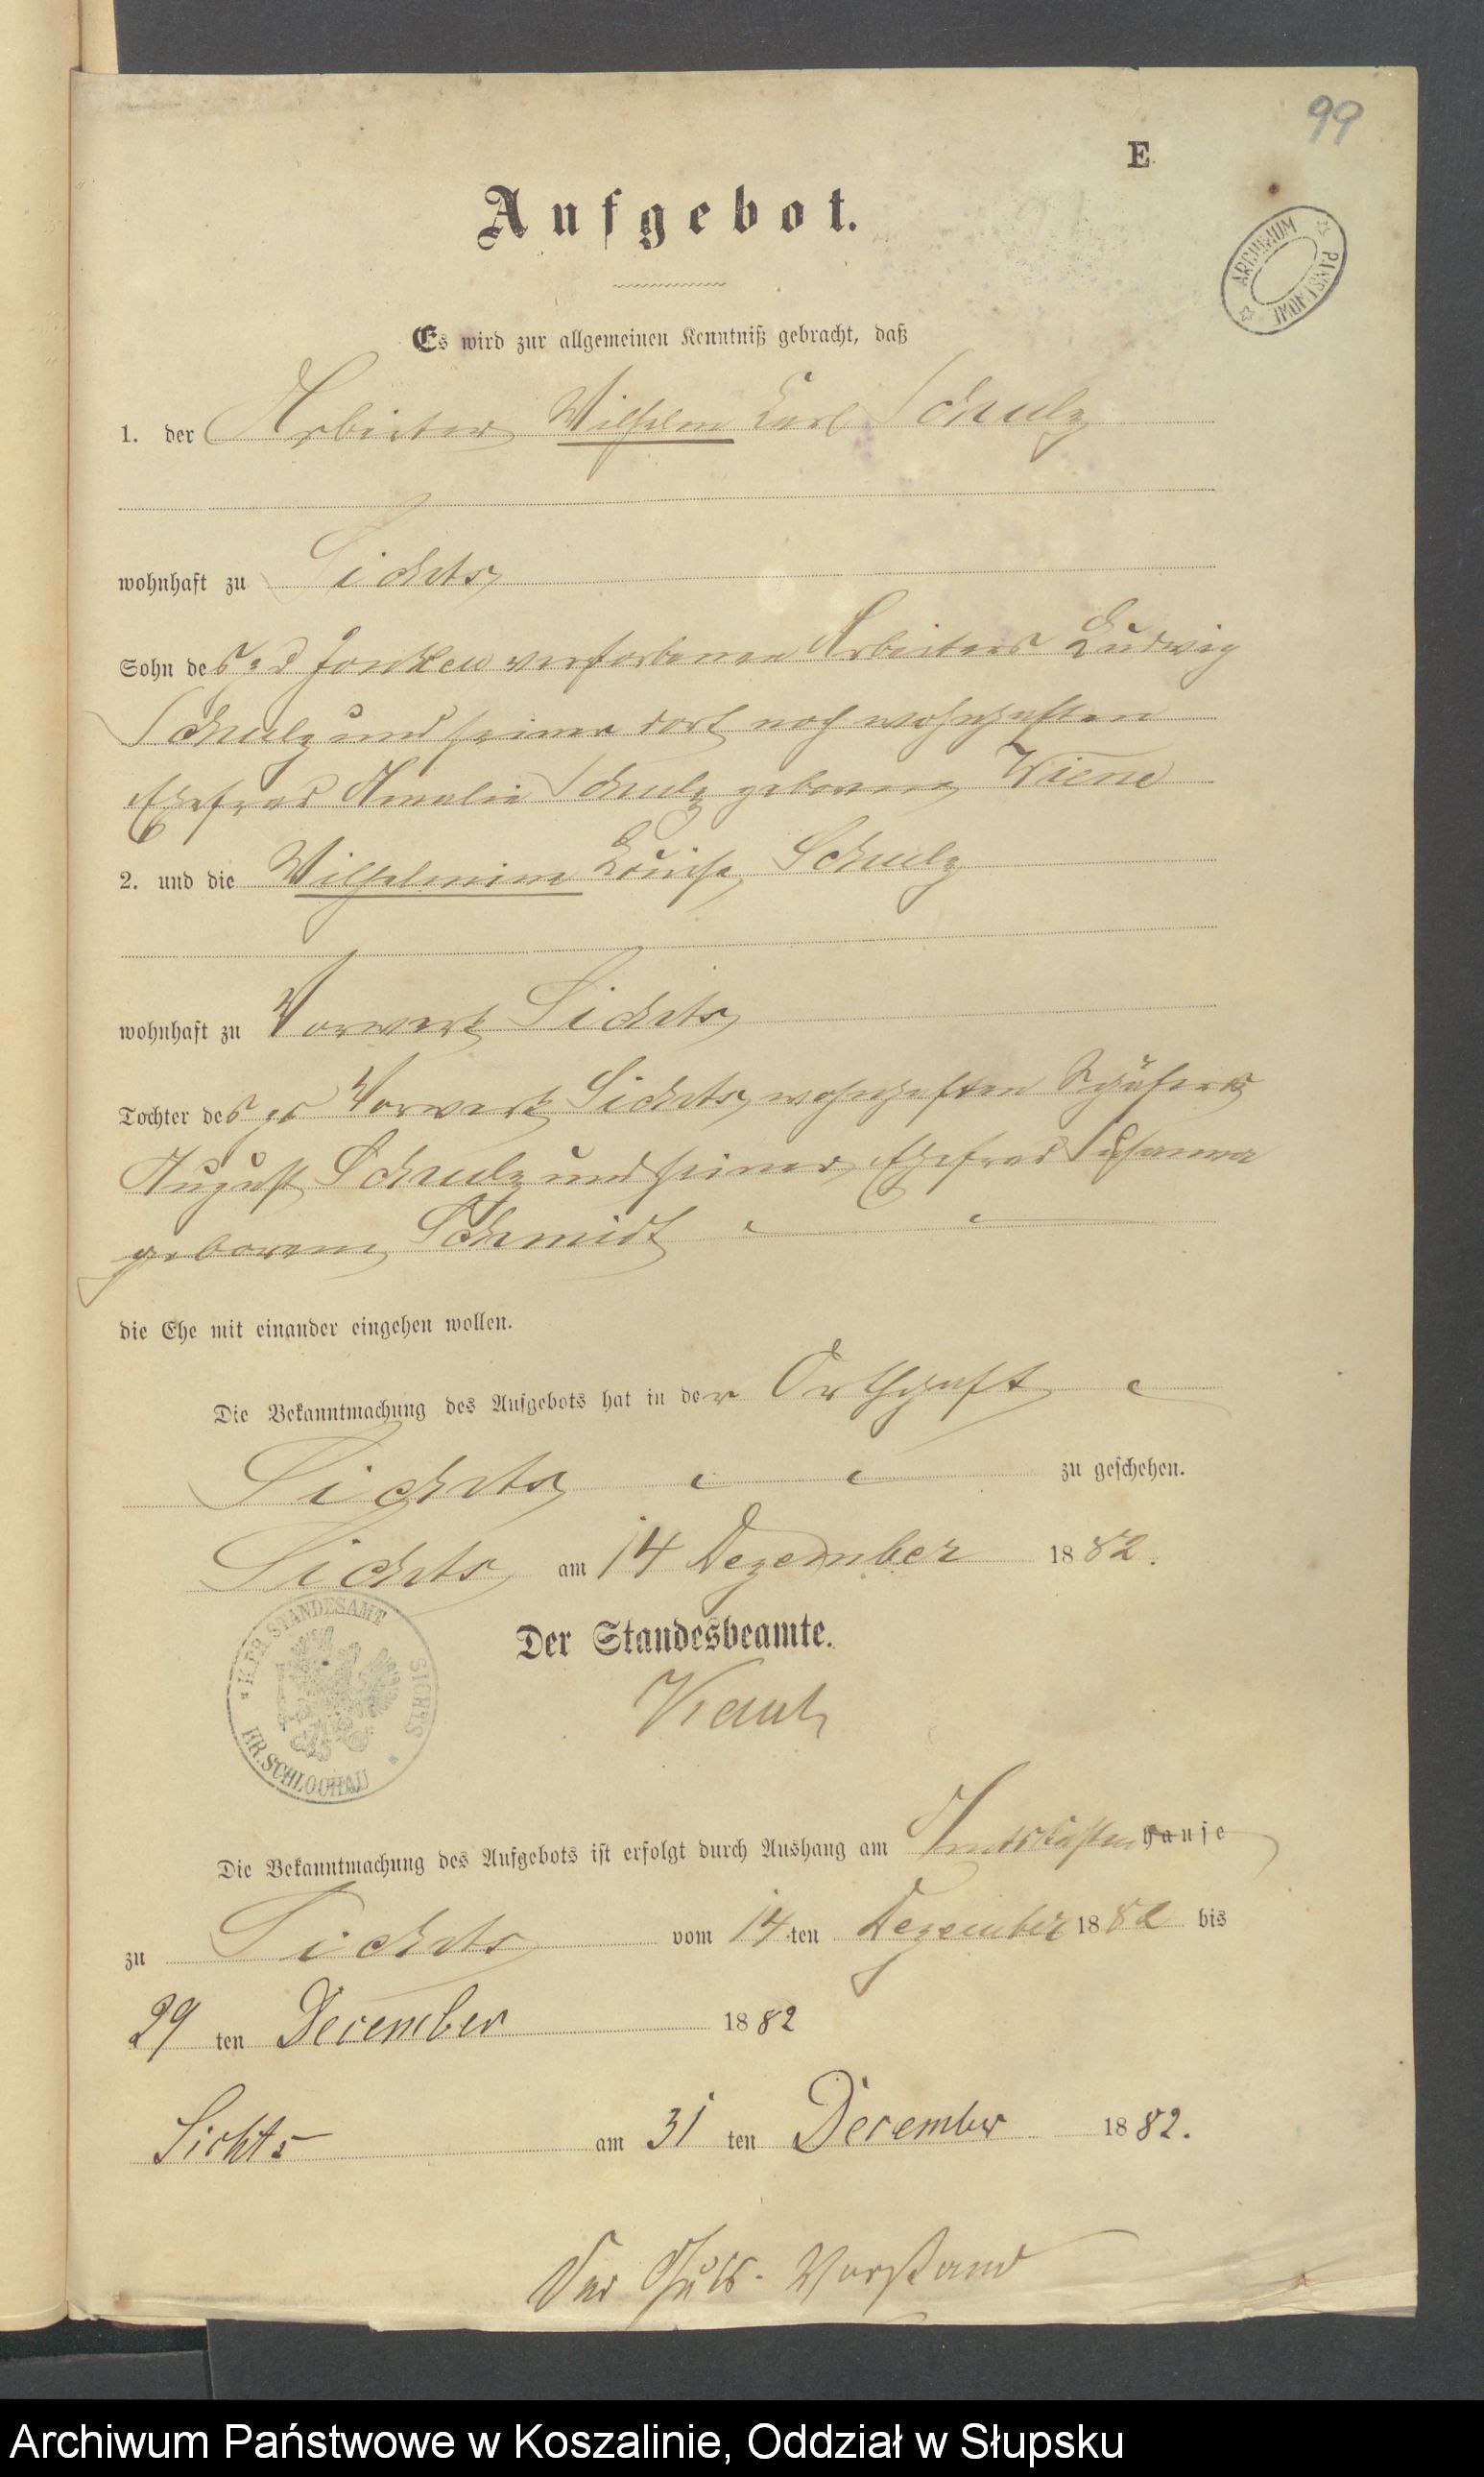 99
E
Aufgebot.
ARCHIWUM PAŃSTWOWE
Es wird zur allgemeinen Kenntniß gebracht, daß
1. der Arbeiter Wilhelm Carl Schulz
wohnhaft zu Sichts
Sohn des zu verstorbenen Arbeiters Ludwig
Schulz und seiner dort noch wohnhaften
Ehefrau Amalie Schulz geborene Wiene
2. und die Wilhelmine Louise Schulz
wohnhaft zu Vorwerk Sichts
Tochter des zu Vorwerk Sichts wohnhaften Schäfers
August Schulz und seiner Ehefrau Susanna
geborene Schmidt
die Ehe mit einander eingehen wollen.
Die Bekanntmachung des Aufgebots hat in der Ortschaft
Sichts zu geschehen.
Sichts am 14 Dezember 1882.
K. PR. STANDESAMT SICHTS KR. SCHLOCHAU
Der Standesbeamte.
Die Bekanntmachung des Aufgebots ist erfolgt durch Aushang am hause
zu Sichts vom 14 ten Dezember 1882 bis
29 ten December 1882
Sichts am 31 ten December 1882.
Der Guts-Vorstand
Archiwum Państwowe w Koszalinie, Oddział w Słupsku